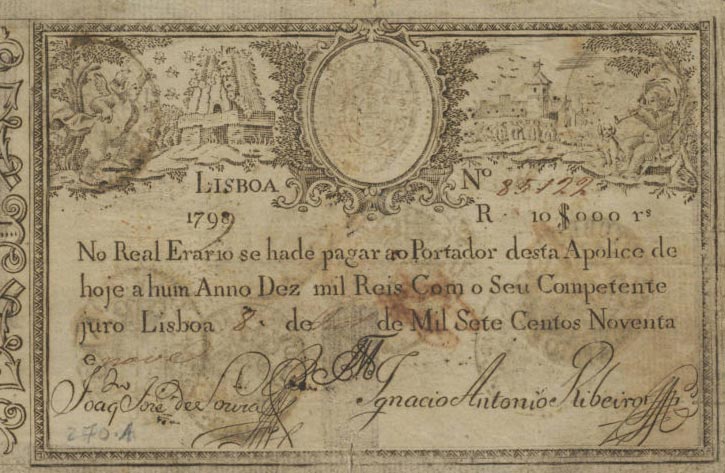 LISBOA Nº 83122
179 R 10$000 rs
No Real Erario se hade pagar ao Portador desta Apolice de
hoje a hum Anno Dez mil Reis Com o Seu Competente
juro Lisboa 8 de de Mil Sete Centos Noventa
e nove
Joaqm Joze de Souza Ignacio Antonio Ribeiro
270.A